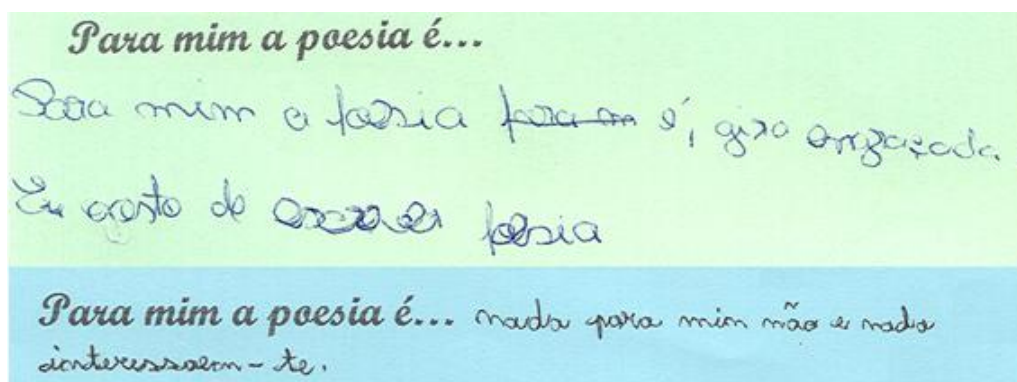 Para mim a poesia é...
Para mim a poesia para m é, giro engraçada
Eu gosto de escrever poesia
Para mim a poesia é... nada para mim não e nada
interessem-te.